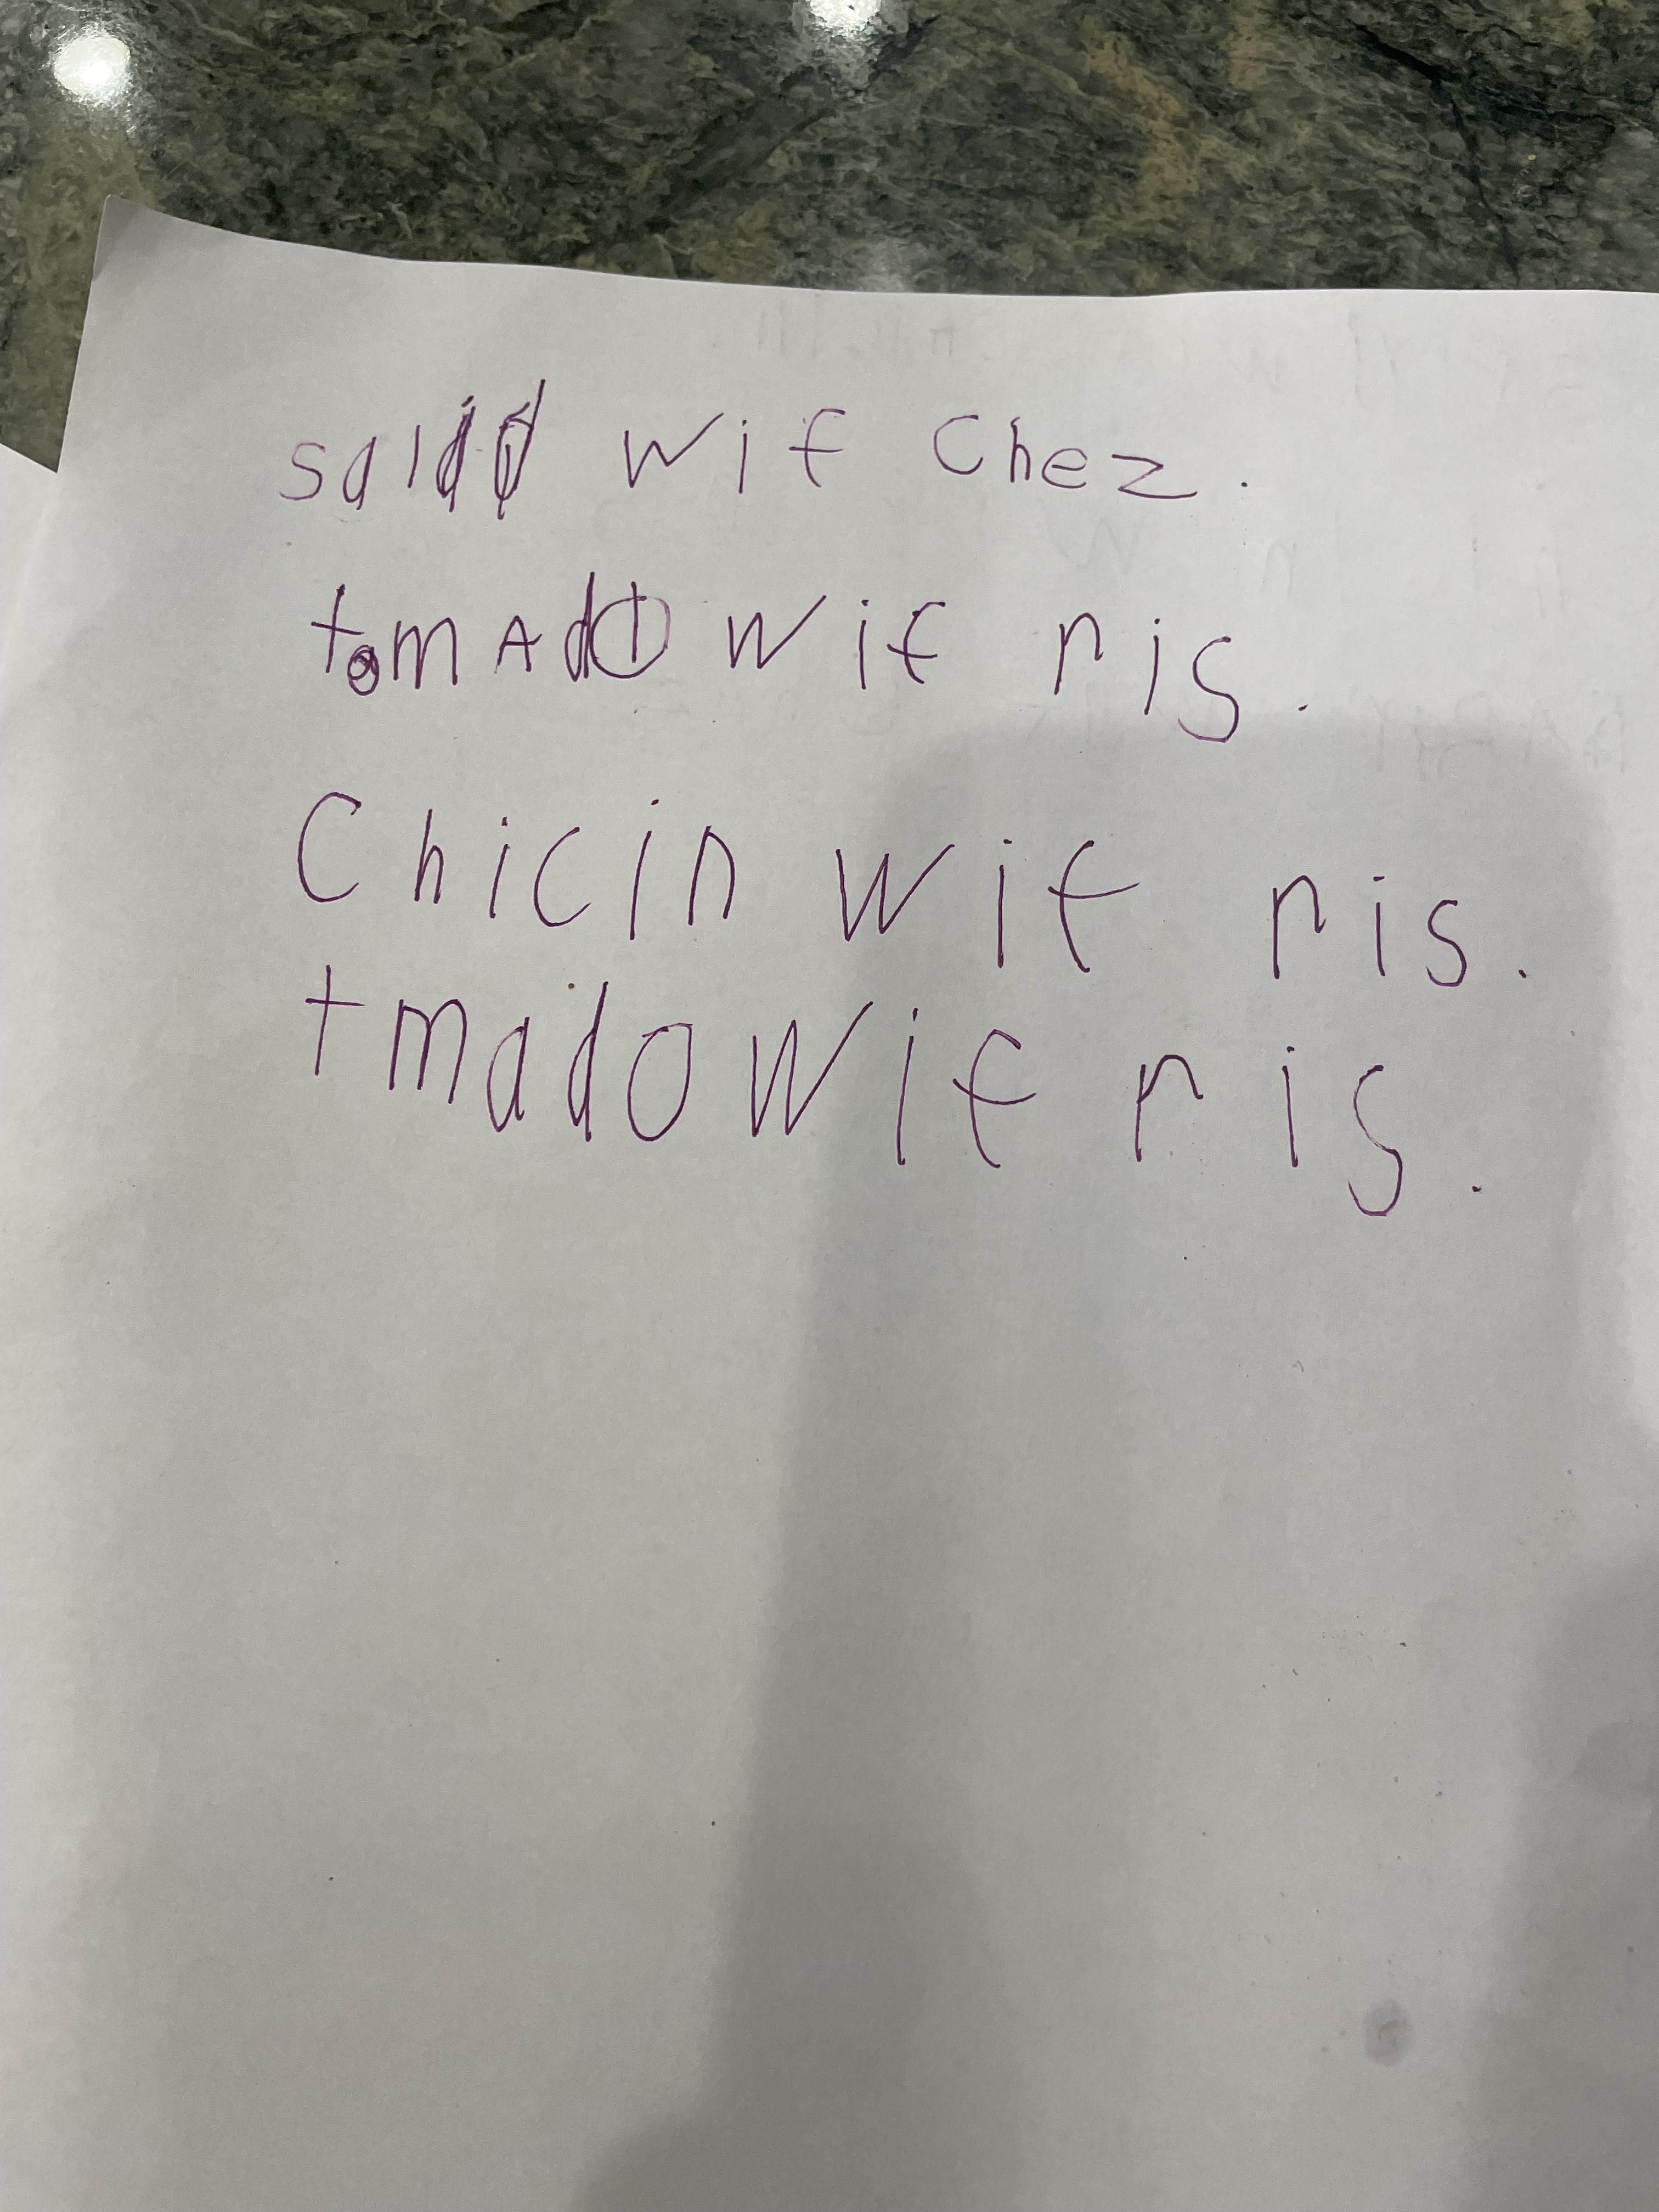 salad wif Chez.
tomAdo wif ris.
Chicin wif ris.
tmado wif ris.